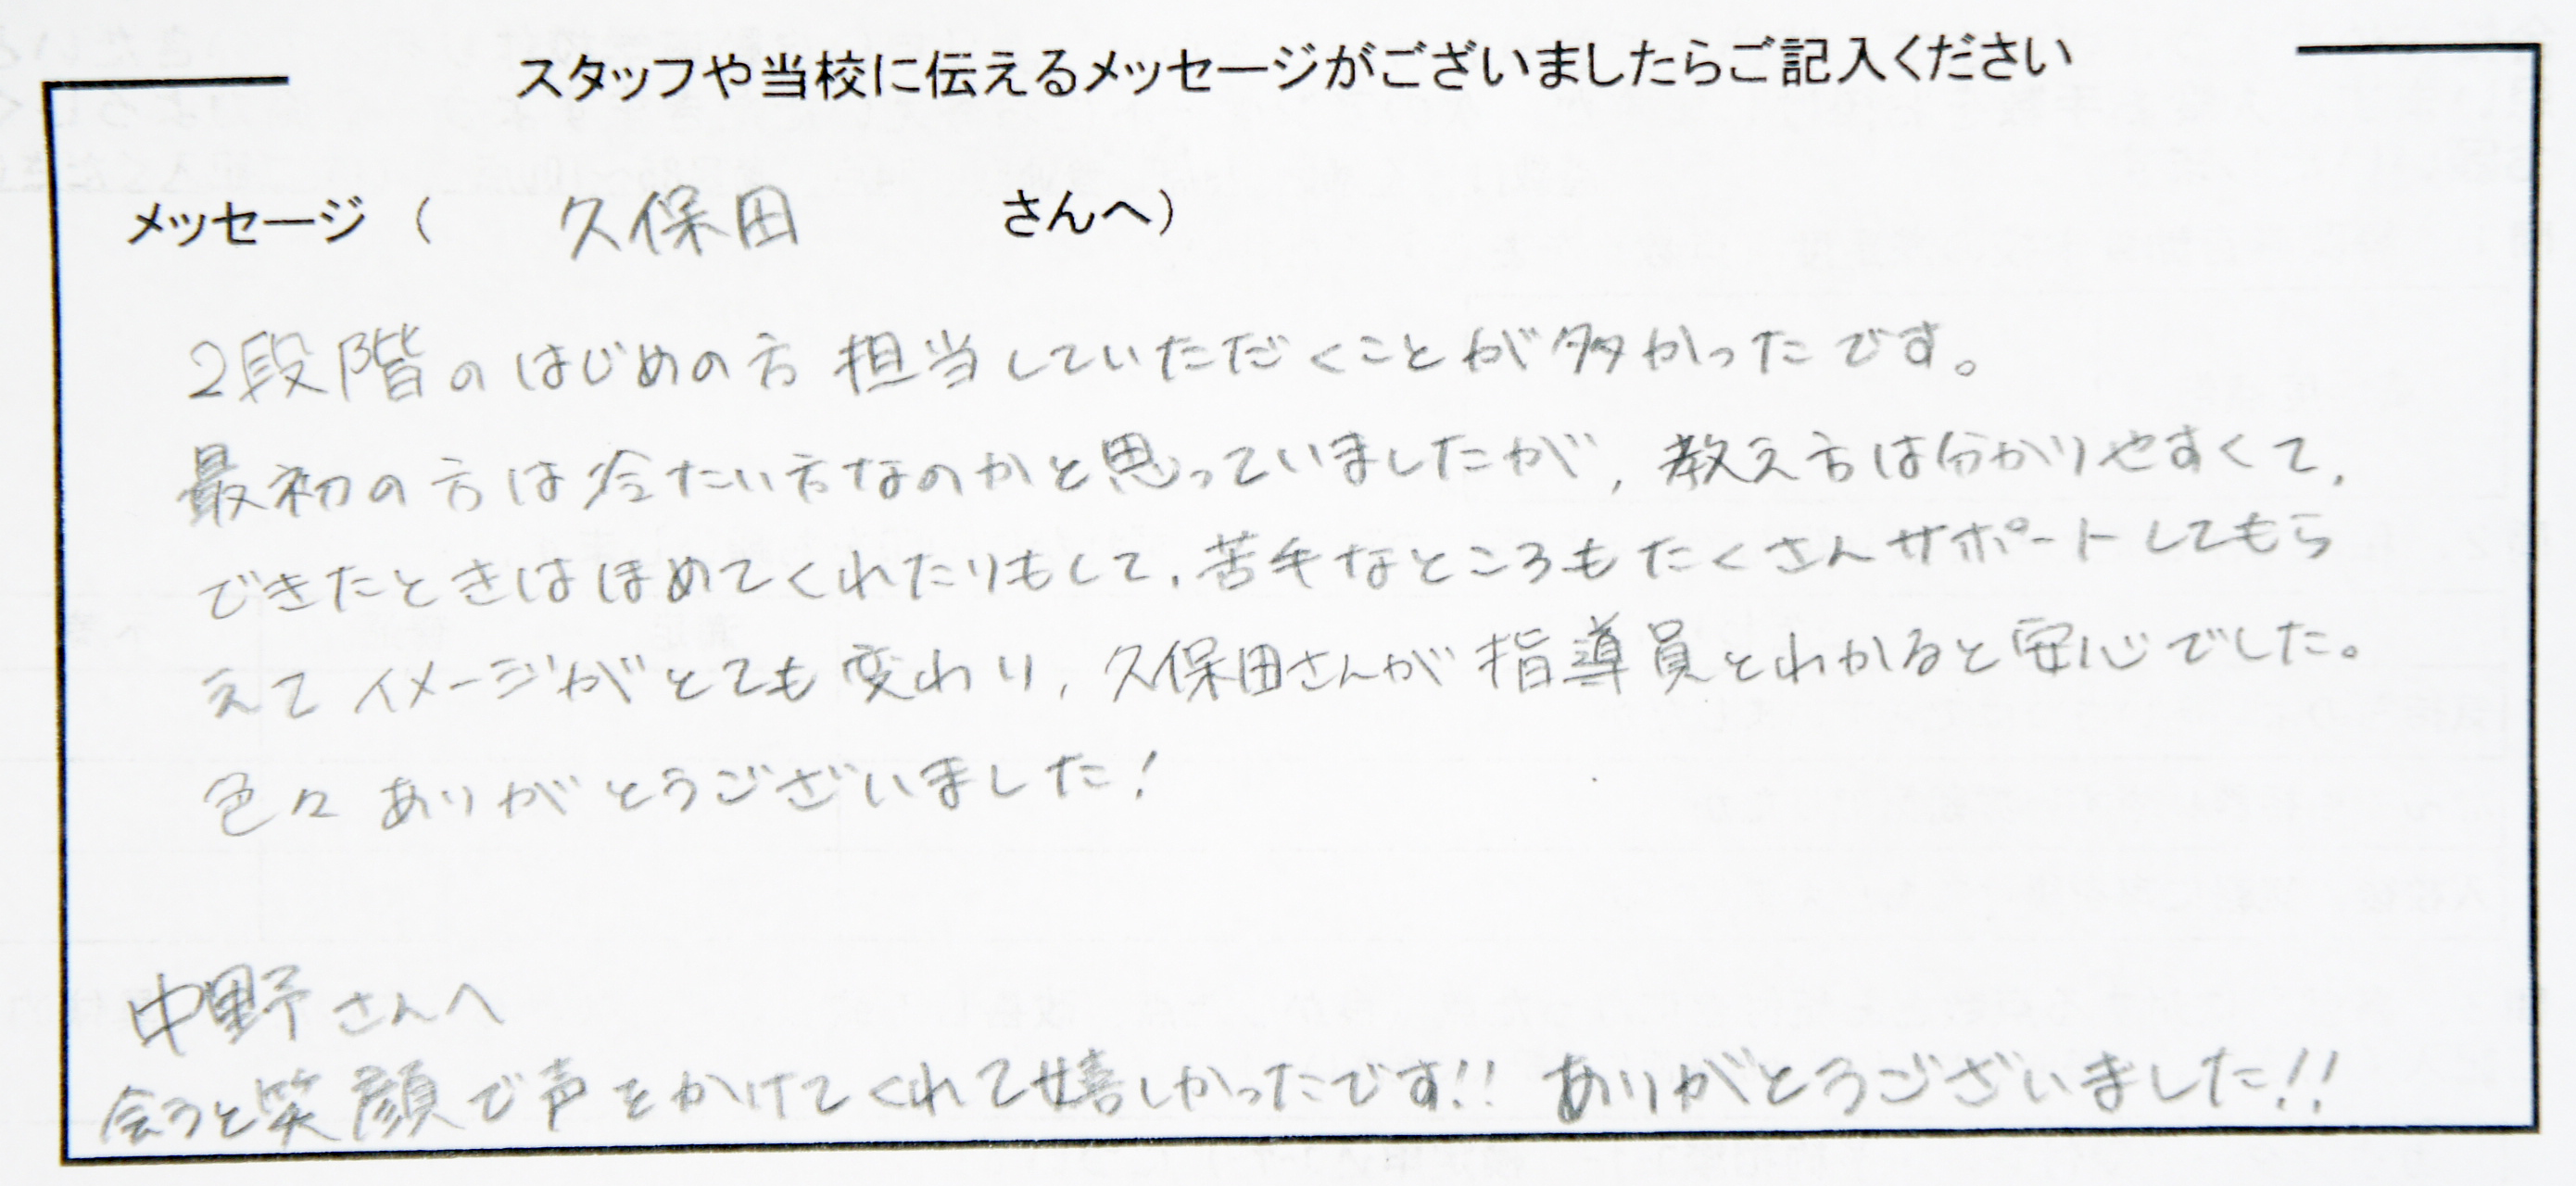 スタッフや当校に伝えるメッセージがございましたらご記入ください
メッセージ（ 久保田 さんへ）
2段階のはじめの方担当していただくことが多かったです。
最初の方は冷たい方なのかと思っていましたが、教え方は分かりやすくて、
できたときはほめてくれたりもして、苦手なところもたくさんサポートしてもら
えてイメージがとても変わり、久保田さんが指導員とわかると安心でした。
色々ありがとうございました!
中野さんへ
会うと笑顔で声をかけてくれて嬉しかったです!! ありがとうございました!!